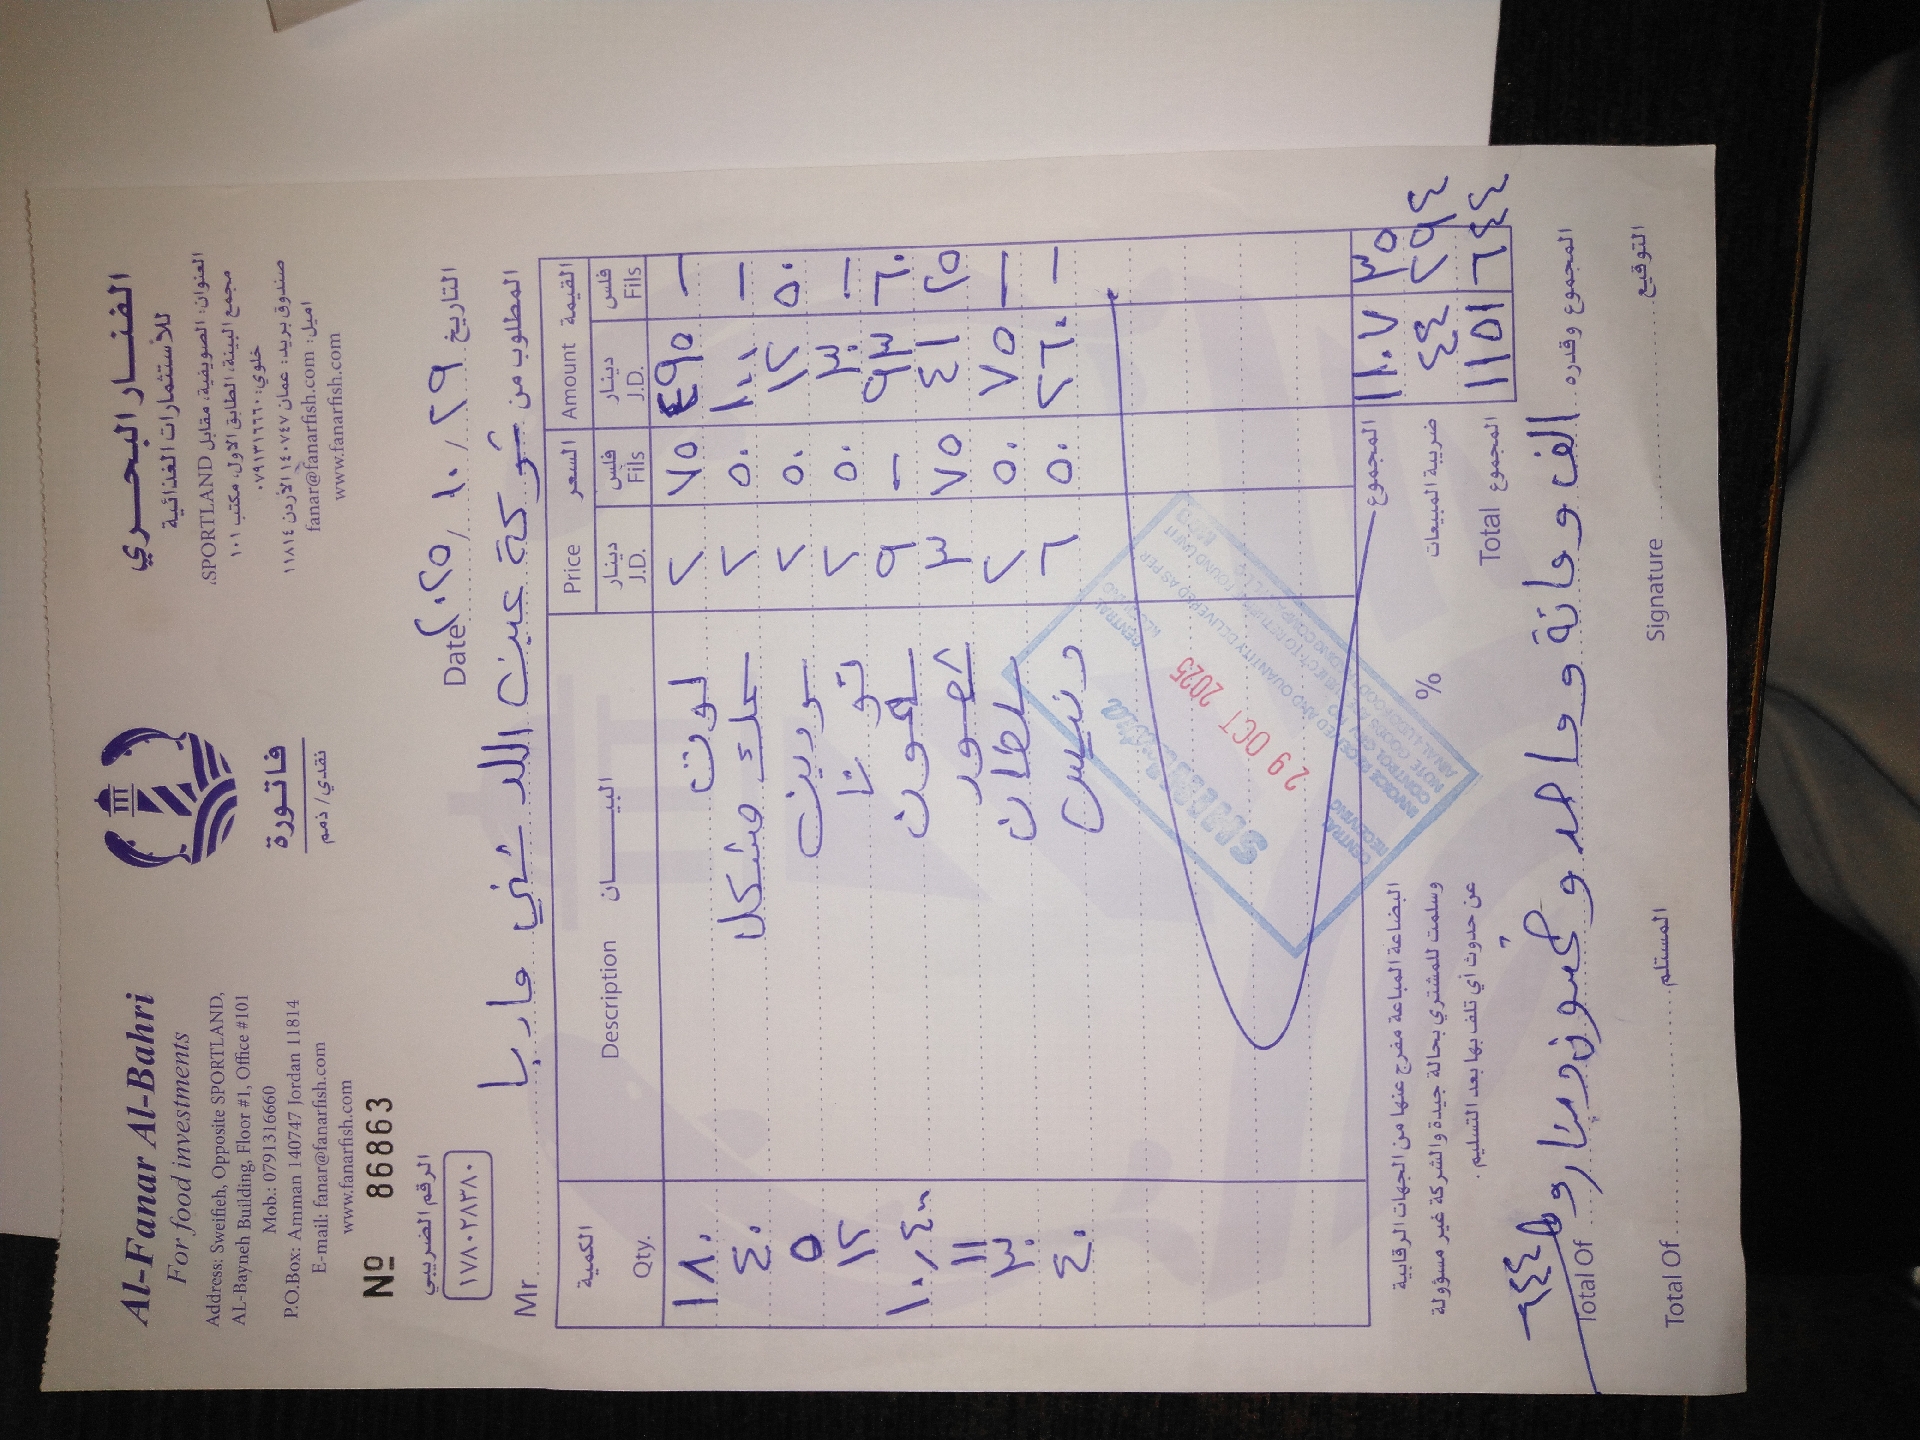 Al-Fanar Al-Bahri
For food investments
Address: Sweifieh, Opposite SPORTLAND,
AL-Bayneh Building, Floor #1, Office #101
Mob.: 0791316660
P.O.Box: Amman 140747 Jordan 11814
E-mail: fanar@fanarfish.com
www.fanarfish.com
الفنار البحري
للأستثمارات الغذائية
العنوان: الصويفية، مقابل SPORTLAND،
مجمع البينة، الطابق الاول، مكتب ١٠١
خلوي: ٠٧٩١٣١٦٦٦٠
صندوق بريد: عمان ١٤٠٧٤٧ الأردن ١١٨١٤
اميل: fanar@fanarfish.com
www.fanarfish.com
فاتورة
نقدي / ذمم
Nº 86863
الرقم الضريبي
١٧٨٠٢٨٣٨٠
Date ٢٠٢٥/١٠/٢٩ التاريخ
Mr. المطلوب من شركة عين اللد شني ماربا
الكمية البيـــــان السعر Price القيمة Amount
Qty. Description دينار J.D. فلس Fils دينار J.D. فلس Fils
١٨٠ لوت ٢ ٧٥ ٤٩٥ —
٤٠ سمك مشكل ٢ ٥٠ ١٠٠ —
٥ سردين ٢ ٥٠ ١٢ ٥٠
١٢ تونا ٢ ٥٠ ٣٠ —
١٠,٤٠٠ سلمون ٩ — ٩٣ ٦٠
١١ شعور ٣ ٧٥ ٤١ ٢٥
٣٠ سلطان ٢ ٥٠ ٧٥ —
٤٠ دنيس ٦ ٥٠ ٢٦٠ —
29 OCT 2025
المجموع ١١٠٧ ٣٥
% ضريبة المبيعات ٤٤ ٢٩٤
Total المجموع ١١٥١ ٦٤٤
البضاعة المباعة مفرج عنها من الجهات الرقابية
وسلمت للمشتري بحالة جيدة والشركة غير مسؤولة
عن حدوث أي تلف بها بعد التسليم.
Total Of المجموع وقدره الف ومائة وواحد وخمسون دينار و ٦٤٤
Total Of المستلم
Signature التوقيع